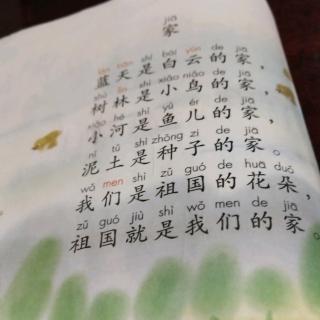 jiā
家
lán tiān shì bái yún de jiā
蓝天是白云的家，
shù lín shì xiǎo niǎo de jiā
树林是小鸟的家，
xiǎo hé shì yú ér de jiā
小河是鱼儿的家，
ní tǔ shì zhǒng zi de jiā
泥土是种子的家。
wǒ men shì zǔ guó de huā duǒ
我们是祖国的花朵，
zǔ guó jiù shì wǒ men de jiā
祖国就是我们的家。